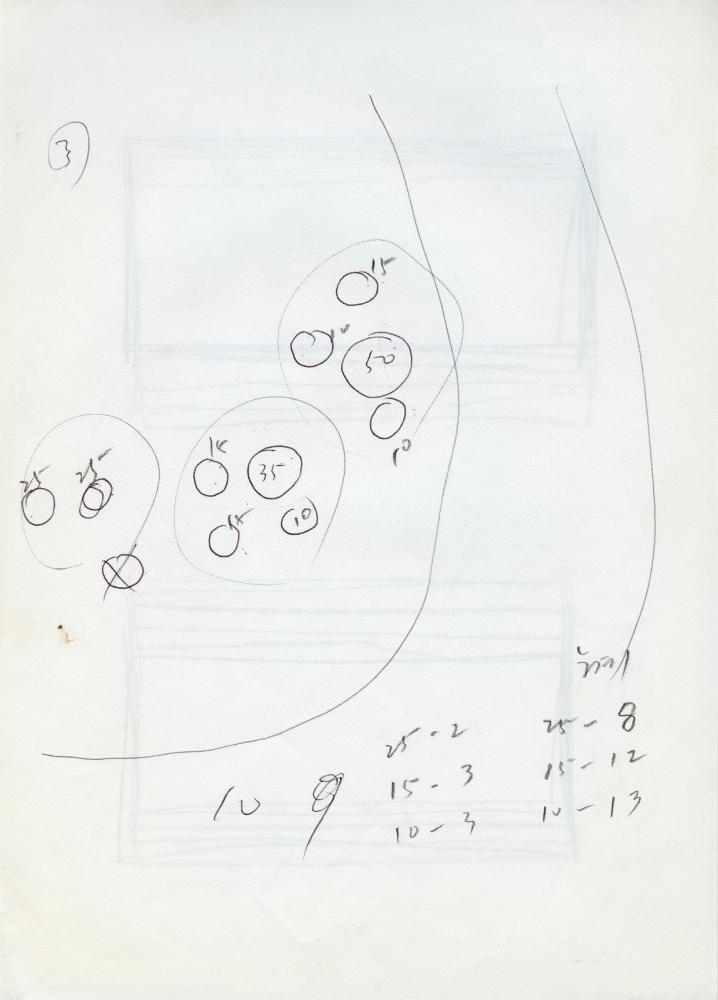 3
15
10
50
10
25
25
15
35
15
10
25 - 2
15 - 3
10 - 3
25 - 8
15 - 12
10 - 13
10